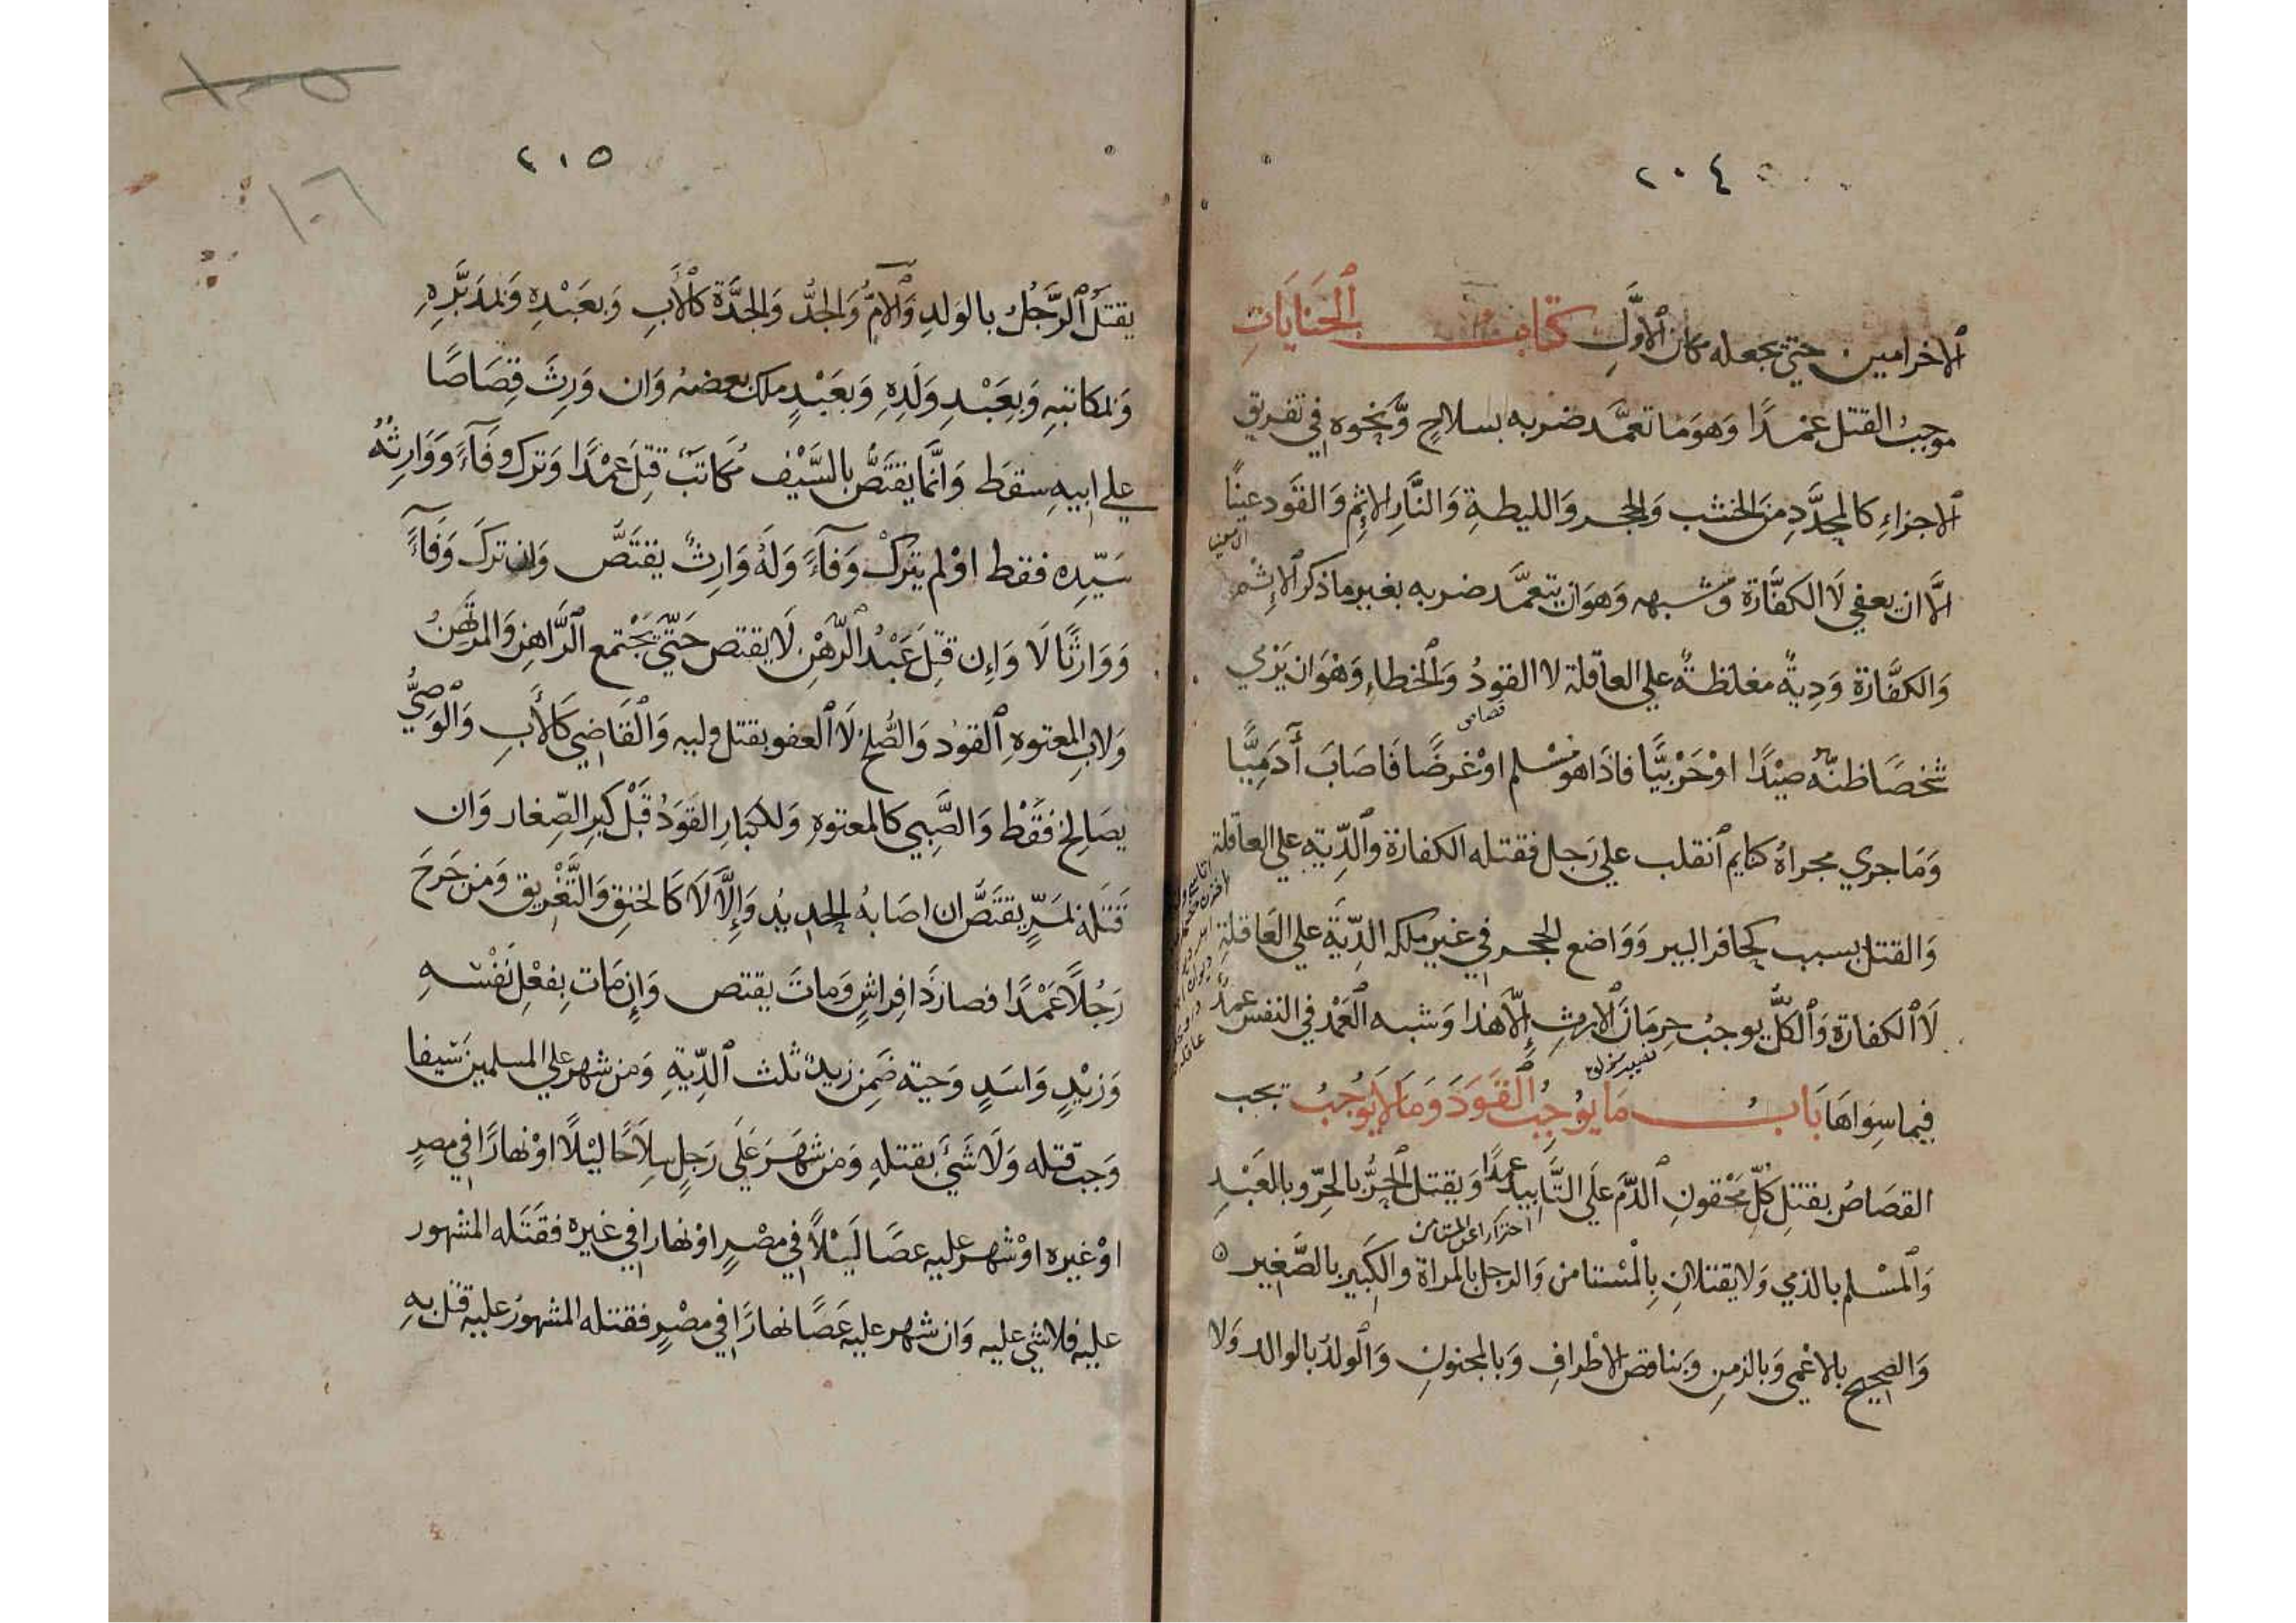 ٢٠٤
الاخر امين حتي يجعله مكان الاوَّلِ كتاب الجنَايَاتِ
موجبُ القتل عَمْدًا وَهوَ مَا تعمَّد ضربه بسلاحٍ وَّنحوه في تفريق
الاجزاءِ كالمحدَّدِ مِنَ الخشب وَالحجر وَالليطةِ وَالنَّارِ الاثِم وَالقَود عينًا
الَّا ان يعفي لَا الكفَّارة وَشبهه وَهوَ ان يتعمَّد ضربه بغير ما ذكر الاِثم
وَالكفَّارة وَدِيةٌ مغلظةٌ علي العاقلة لا القودُ وَالخطاءِ وَهْوَ ان يَرْمي
شخصًا ظنَّهُ صيْدًا اوْ حَرْبيًّا فاذَا هوَ مسْلم اوْ غرضًا فَاصَابَ آدَمِيًّا
وَمَا جري مجراهُ كنايم انقلب علي رَجل فقتله الكفارة وَالدِّية علي العاقلة
وَالقتل بسبب كحافر البير وَوَاضع الحجر في غير ملكه الدِّيَة علي العَاقلةِ
لَا الكفارة وَالكلُّ يوجبُ حِرمَانَ الارثِ اِلَّا هذا وَشبه العَمْد في النفس عمدٌ
فيما سِوَاهَا بَابُ مَا يوُجِبُ القَوَدَ وَمَا لَا يُوجِبُ تجب
القصَاصُ بقتل كلِّ مَحْقونِ الدَّمِ علَي التَّابيد عمدًا وَيقتل الحرُّ بالحرِّ وبالعَبْدِ
احترازا عن المستامن
وَالمسْلم بالذمي وَلا يقتلانِ بِالمسْتامن وَالرجل بالمراة والكَبير بالصَّغير
وَالصحيح بالاعْمى وَبالزمِن وَبناقص الاطْرافِ وَبالمجنونِ وَالولدُ بالوالد وَلا
٢٠٥
١٠٦
يقتلُ الرَّجُلُ بالوَلدِ وَالامُّ وَالجدُّ وَالجدَّة كالْاَبِ وَبعَبْدِهِ وَبمدَبَّرِهِ
وَبمكاتبِهِ وَبِعَبْدِ وَلَدِهِ وَبعَبْدٍ ملك بعضهُ وَان وَرِثَ قِصَاصًا
علي ابيهِ سقطَ وَانَّما يقتَصُّ بالسَّيْف مُكَاتبٌ قتِلَ عمْدًا وَترك وفَآءً وَوَارِثُهُ
سَيّده فقط اوْ لم يترُكْ وَفآءً وَلَهُ وَارِثٌ يقتَصُّ وَان تركَ وَفآءً
وَوَارثًا لَا وَاِن قتِلَ عَبْدُ الرَّهْنِ لَا يقتص حَتَّي يَجْتمع الرَّاهِن وَالمرتَهنُ
وَلابِ المعتوهِ القودُ وَالصُّلح لَا العفو بقتل وليه وَالْقَاضِي كَالأَبِ وَالْوَصِيُّ
يصَالحُ فقَطْ وَالصَّبي كالمعتوهِ وَللكبارِ القوَدُ قَبْلَ كِبرِ الصِّغار وَان
قتَلهُ بمَرٍّ يقتَصُّ ان اصَابهُ الحديدُ وَاِلَّا لَا كَالخنِق وَالتَّغْرِيق وَمَن جَرَحَ
رَجُلًا عَمْدًا فصارَ ذَا فِراشٍ وَماتَ يقتص وَاِن مَات بِفعْلِ نَفْسِهِ
وَزيْدٍ وَاسَدٍ وَحيّة ضَمِن زيدٌ ثلث الدِّيَةِ وَمن شهر علي المسلمين سَيفا
وَجبَ قتله وَلَا شَيْءَ بقتلهِ وَمَن شَهَرَ عَلَي رَجلٍ سِلَاحًا ليْلًا اوْ نهارًا في مصرٍ
اوْ غيره اوْ شهر عليه عصَا لَيْلًا في مصْرٍ اوْ نهارا في غيره فقَتَله المشهور
عليْه فلا شي عليه وَان شهر عليه عَصًا نهارًا في مصْرٍ فقتله المشهورُ عليه قتل بهِ